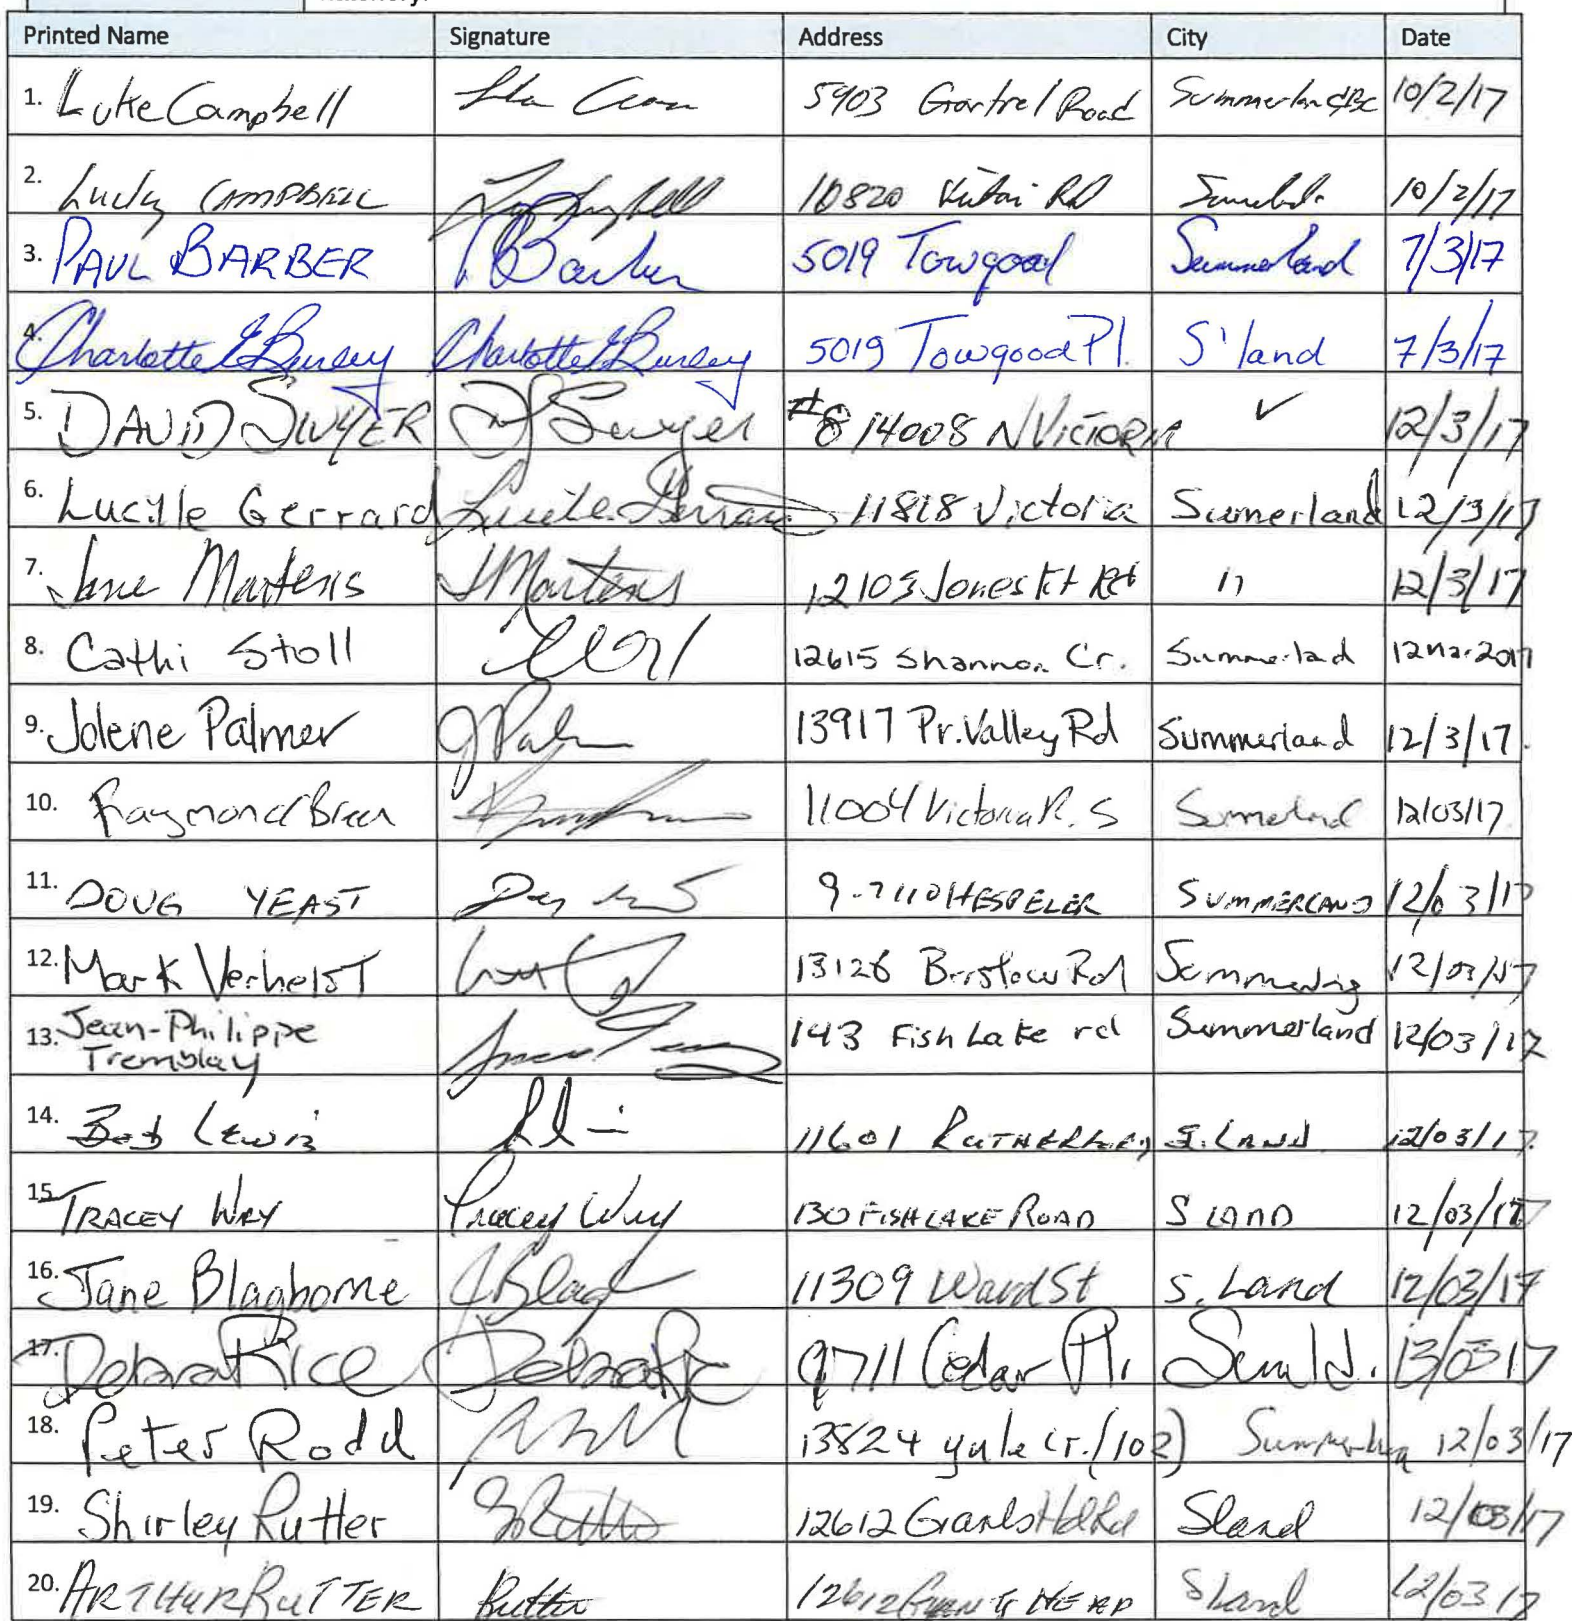 Printed Name Signature Address City Date
1. Luke Campbell 5903 Gartrel Road Summerland BC 10/2/17
2. Lucky CAMPBELL 10820 Rd 10/2/17
3. PAUL BARBER PBarber 5019 Towgood Summerland 7/3/17
4. Charlotte E Bursey Charlotte E Bursey 5019 Towgood Pl. S'land 7/3/17
5. DAVID SWYER D Swyer #8 14008 N VICTORIA ✓ 12/3/17
6. Lucille Gerrard Lucille Gerrard 11818 Victoria Sumerland 12/3/17
7. Jane Martens JMartens 12103 Jones Flt Rd 12/3/17
8. Cathi Stoll 12615 Shannon Cr. Summerland 12Mar2017
9. Jolene Palmer JPalmer 13917 Pr. Valley Rd Summerland 12/3/17
10. Raymond 11004 Victoria R. S Summerland 12/03/17
11. DOUG YEAST 9-7110 HESPELER SUMMERLAND 12/03/17
12. Mark Verhelst 13126 Bristow Rd 12/03/17
13. Jean-Philippe
Tremblay 143 Fish Lake rd Summerland 12/03/17
14. Bob Lewis 11601 S.LAND 12/03/17
15. TRACEY WRY Tracey Wry 130 FISH LAKE ROAD S LAND 12/03/17
16. Jane Blagborne JBlag 11309 Ward St S. Land 12/03/17
17. Debra Rice Debra Rice 9711 Cedar Pl. 13/03 17
18. Peter Rodd 13824 yale cr. (102) 12/03/17
19. Shirley Rutter SRutter 12612 Giants Hd Rd Sland 12/03/17
20. ARTHUR RUTTER Rutter 12612 HEAD SLand 12/03 17